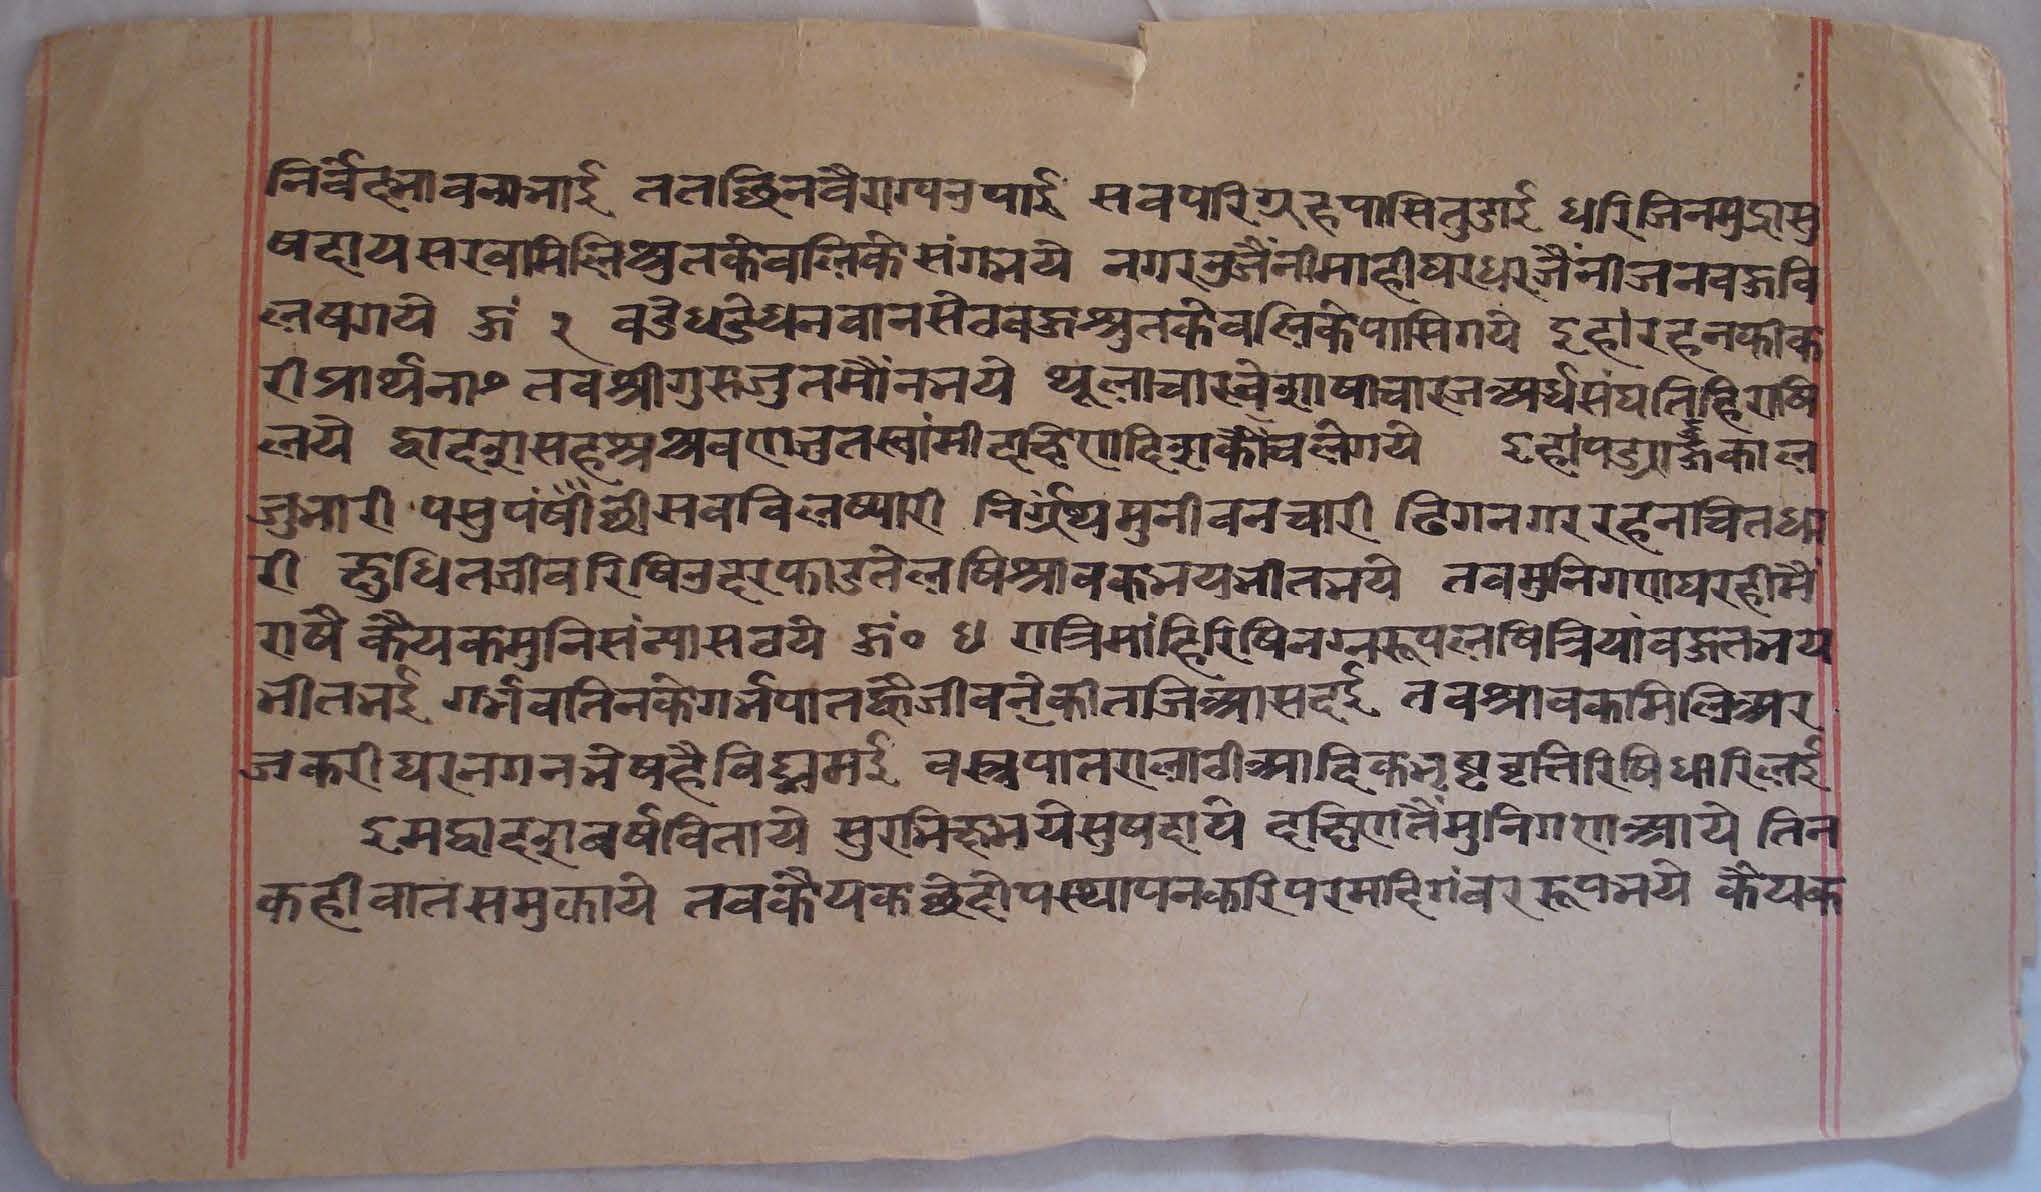 निर्वेदभावनाभाई ततछिनवैराग्यनुपाई सवपरिग्रहपासितुडाई धरिजिनमुद्रासु
षदायसरवामिलिश्रुतकेवलिकेसंगभये नगरनुजैंनीमाहीघरघरजैंनीजनवऊवि
लषगये ऊं २ वडेधडेधनवानसेठवऊश्रुतकेवलिकेपासिगये इहांरहनकीक
रीप्रार्थना॰ तवश्रीगुरुजुतमौंनभये थूलाचार्य शाषाचारजअर्धसंघतिहिराषि
लये द्वादशसहश्रश्रवणजुतस्वांमीदछिणदिशकौंचलेगये इहांपड्याऊकाल
जुभारी पसुपंषीछीसवविलष्यारी निर्ग्रंथमुनीवनचारी ढिगनगररहनचितधा
री क्षुधितजीवरिषिनुदरफाडतेलषिश्रावकभयभीतभये तवमुनिगणघरहीमैं
राषे कैयकमुनिसंन्यासठये ऊं॰ ४ रात्रिमांहिरिषिनग्नरूपलषित्रियांवऊतभय
भीतभई गर्भवतिनकेगर्भपातह्वैजीवनेकीतजिआसदई तवश्रावकमिलिअर
जकरीघरनगनभेषहैविघ्नमई वस्त्रपातरालाठीआदिकभृष्टवृत्तिरिषिधारिलई
इमद्वादशवर्षवितायै सुरभिक्षभयेसुषदाये दक्षिणतैंमुनिगणआये तिन
कहीवातसमुझाये तवकैयकछेदोपस्थापनकरिपरमदिगंवररूपभये कैयक